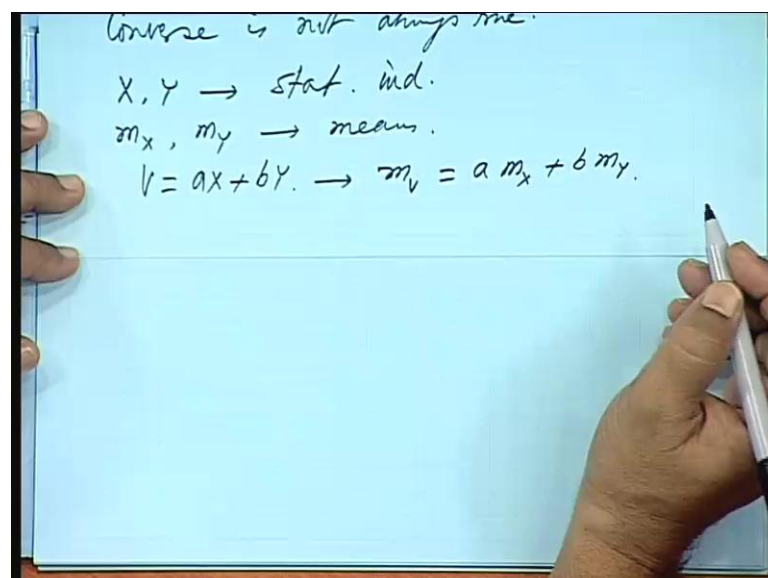 Converse is not always true.
X, Y → stat. ind.
m_X, m_Y → means.
V = aX + bY. → m_V = a m_X + b m_Y.